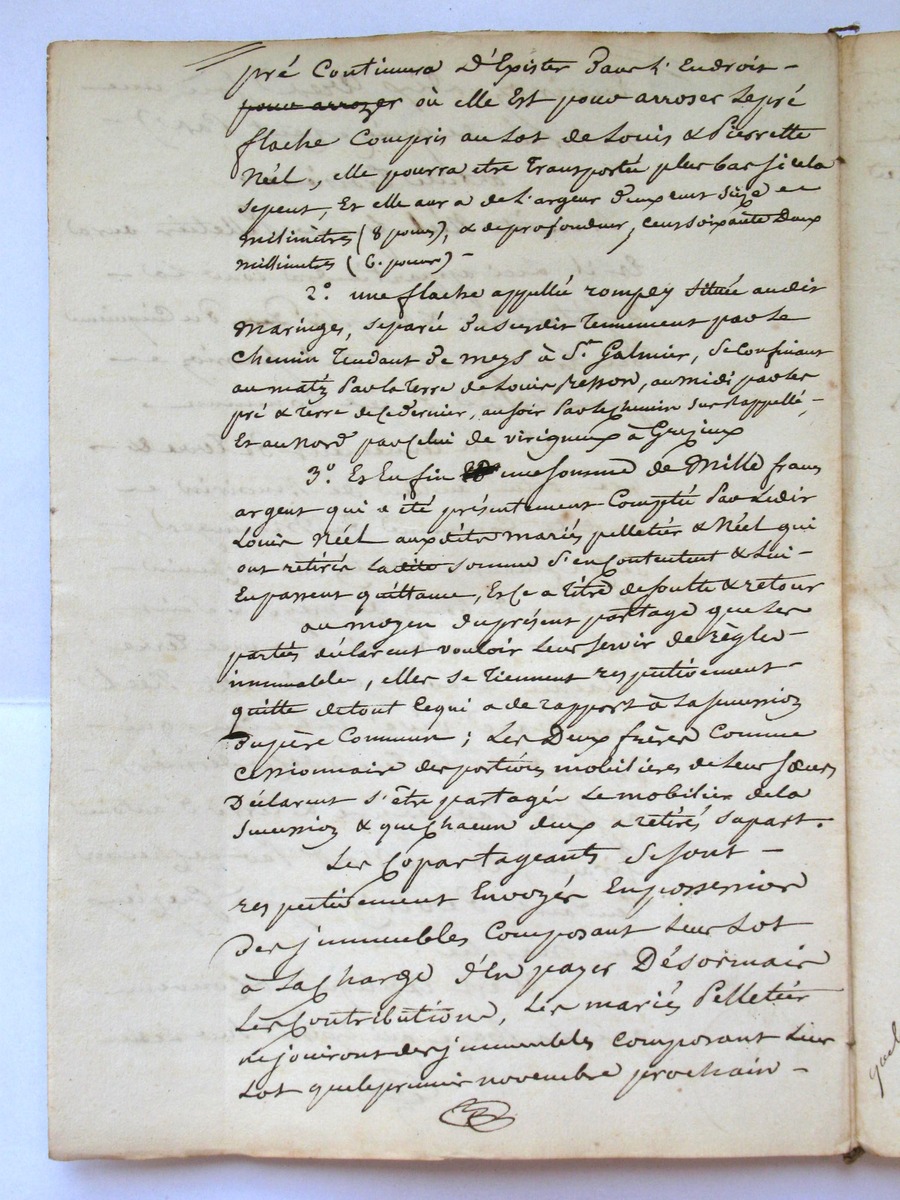 pré Continuera d'Exister Dans L'Endroit -
pour arrozer où elle Est pour arroser Le pré
flache Compris au Lot de Louis & Pierrette
Néel, elle pourra etre Transportée plus bas si cela
se peut, Et elle aura de L'argeur Deux cent Sèize
milimètres (8 pouces), & de profondeur, cent soixante Deux
millimètres (6. pouces) -
2.° une flache appellée rompey située audit
Maringes, separée du susdit Tennement par le
chemin Tendant De meys à St. Galmier, se Confinant
au matin Par la Terre de Louis , au midi par les
pré & terre de Ce Dernier, au soir Par le Chemin sus rappellé -
Et au Nord par Celui de virigneux à Grezieux
3.° Et En fin une somme de Mille francs
argent qui a été présentement Comptée Par Ledit
Louis Néel auxdits mariés pelletier & Néel qui
ont retirés Ladite somme S'en Contentent & Lui -
En passent quittance, Et Ce a titre de soulte & retour
au moyen du présent partage que Les
parties déclarent vouloir Leur servir de règle -
immuable, elles se Tiennent respectivement -
quitte de tout Ce qui a de rapport à La succession
du père Commun ; Les Deux frères Comme
Cessionnaire des portions mobilières de Leurs soeurs
Déclarent s'être partagés Le mobilier de la
succession & que Chacun deux a retirés sa part.
Les Copartageants se sont -
respectivement Envoyés En possession
Des jmmeubles Composant Leur Lot
à La Charge d'En payer Désormais
Les Contributions, Les mariés Pelletier
Ne jouiront des jmmeubles composant Leur
Lot que le premier novembre prochain -